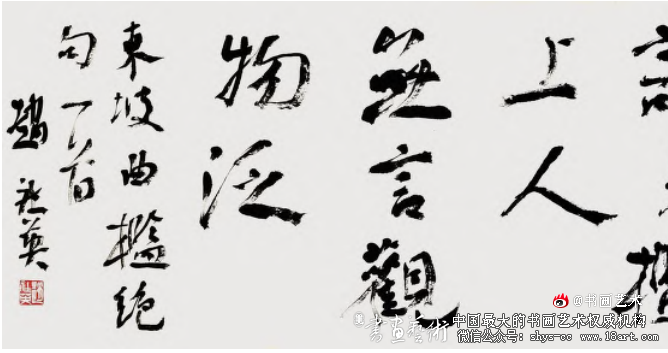 上人
無言觀
物泛
東坡曲檻絕
句一首
趙社英
@书画艺术
書畫藝術
中国最大的书画艺术权威机构
微信公众号: shys-cc www.18art.com